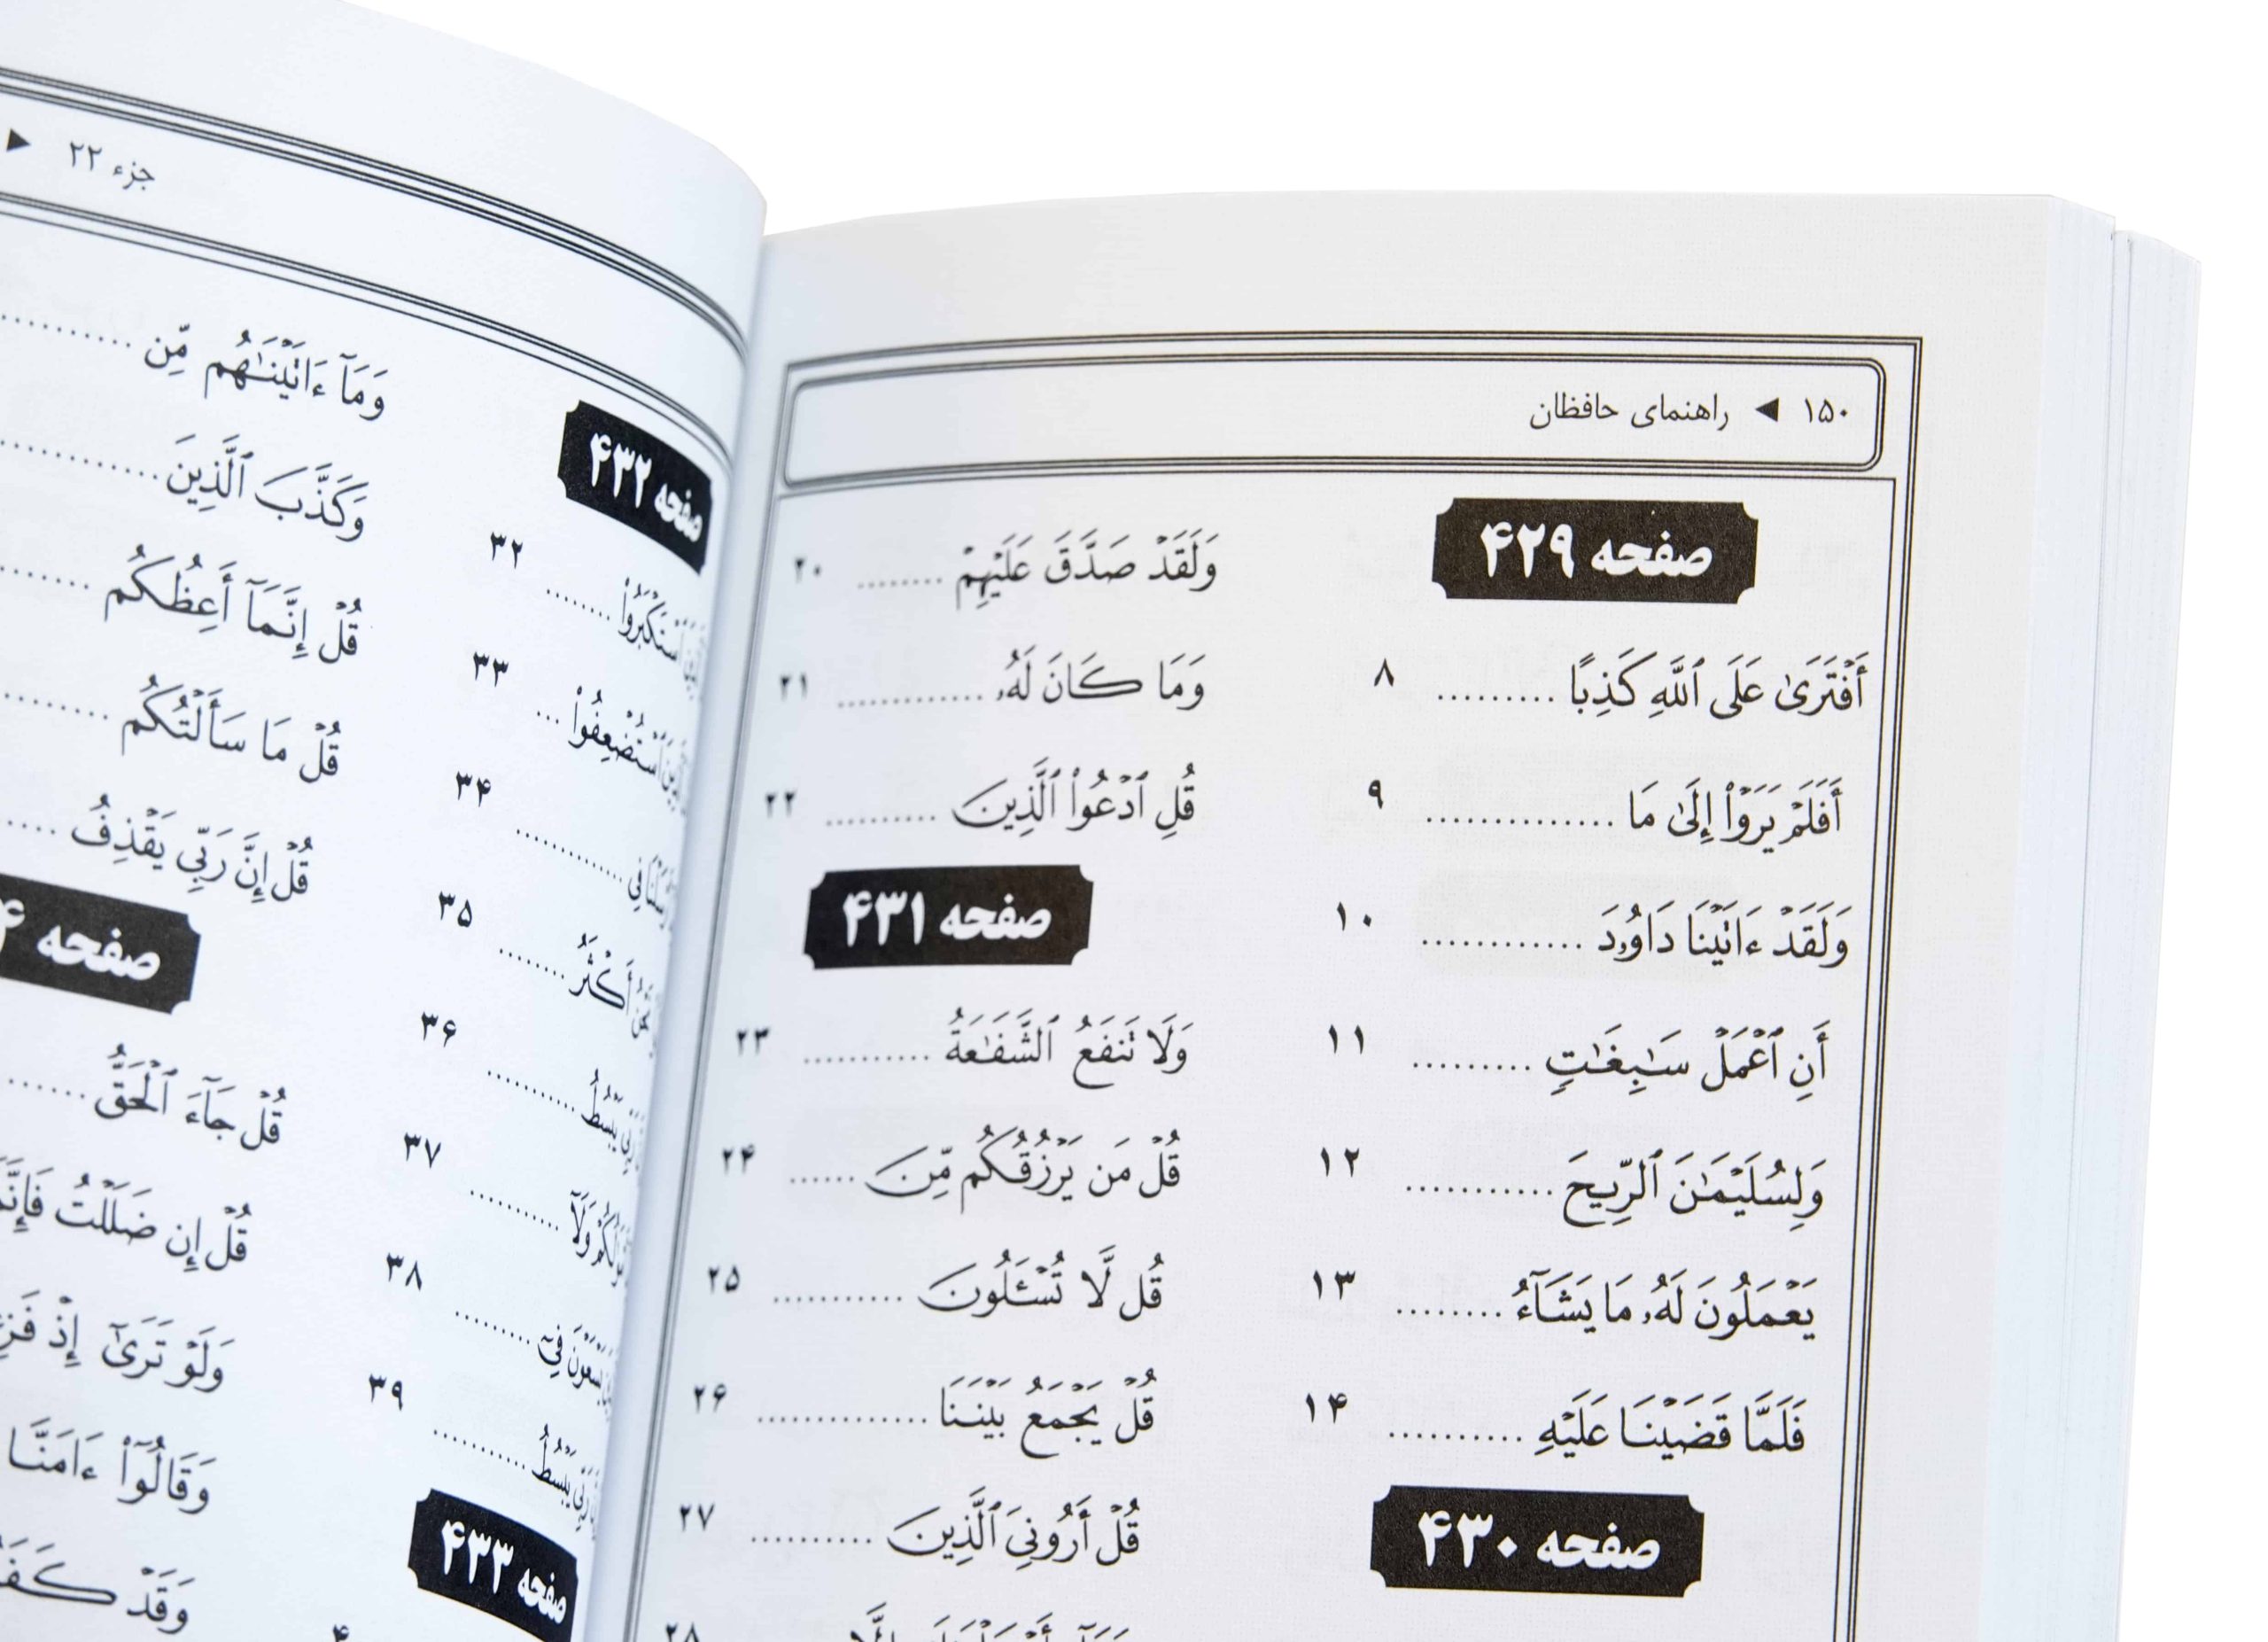 ۱۵۰ ◄ راهنمای حافظان
صفحه ۴۲۹
أَفۡتَرَىٰ عَلَى ٱللَّهِ كَذِبًا ......... ۸
أَفَلَمۡ يَرَوۡاْ إِلَىٰ مَا .............. ۹
وَلَقَدۡ ءَاتَيۡنَا دَاوُۥدَ ............ ۱۰
أَنِ ٱعۡمَلۡ سَـٰبِغَـٰتٍ ......... ۱۱
وَلِسُلَيۡمَـٰنَ ٱلرِّيحَ ........... ۱۲
يَعۡمَلُونَ لَهُۥ مَا يَشَآءُ ........ ۱۳
فَلَمَّا قَضَيۡنَا عَلَيۡهِ .......... ۱۴
صفحه ۴۳۰
وَلَقَدۡ صَدَّقَ عَلَيۡهِمۡ ....... ۲۰
وَمَا كَانَ لَهُۥ ........... ۲۱
قُلِ ٱدۡعُواْ ٱلَّذِينَ ......... ۲۲
صفحه ۴۳۱
وَلَا تَنفَعُ ٱلشَّفَـٰعَةُ .......... ۲۳
قُلۡ مَن يَرۡزُقُكُم مِّنَ ...... ۲۴
قُل لَّا تُسۡـَٔلُونَ ........... ۲۵
قُلۡ يَجۡمَعُ بَيۡنَنَا .............. ۲۶
قُلۡ أَرُونِيَ ٱلَّذِينَ .......... ۲۷
۲۸
جزء ۲۲ ◄
صفحه ۴۳۲
ٱسۡتَكۡبَرُواْ ....... ۳۲
ٱسۡتُضۡعِفُواْ ... ۳۳
فِي .......... ۳۴
أَكۡثَرُ ....... ۳۵
يَبۡسُطُ ......... ۳۶
وَلَآ ......... ۳۷
يَسۡعَوۡنَ فِيٓ ........ ۳۸
رَبِّي يَبۡسُطُ .......... ۳۹
صفحه ۴۳۳
وَمَآ ءَاتَيۡنَـٰهُم مِّن ............
وَكَذَّبَ ٱلَّذِينَ ............
قُلۡ إِنَّمَآ أَعِظُكُم .......
قُلۡ مَا سَأَلۡتُكُم ..........
قُلۡ إِنَّ رَبِّي يَقۡذِفُ ....
صفحه
قُلۡ جَآءَ ٱلۡحَقُّ .......
قُلۡ إِن ضَلَلۡتُ
وَلَوۡ تَرَىٰٓ إِذۡ
وَقَالُوٓاْ ءَامَنَّا
وَقَدۡ